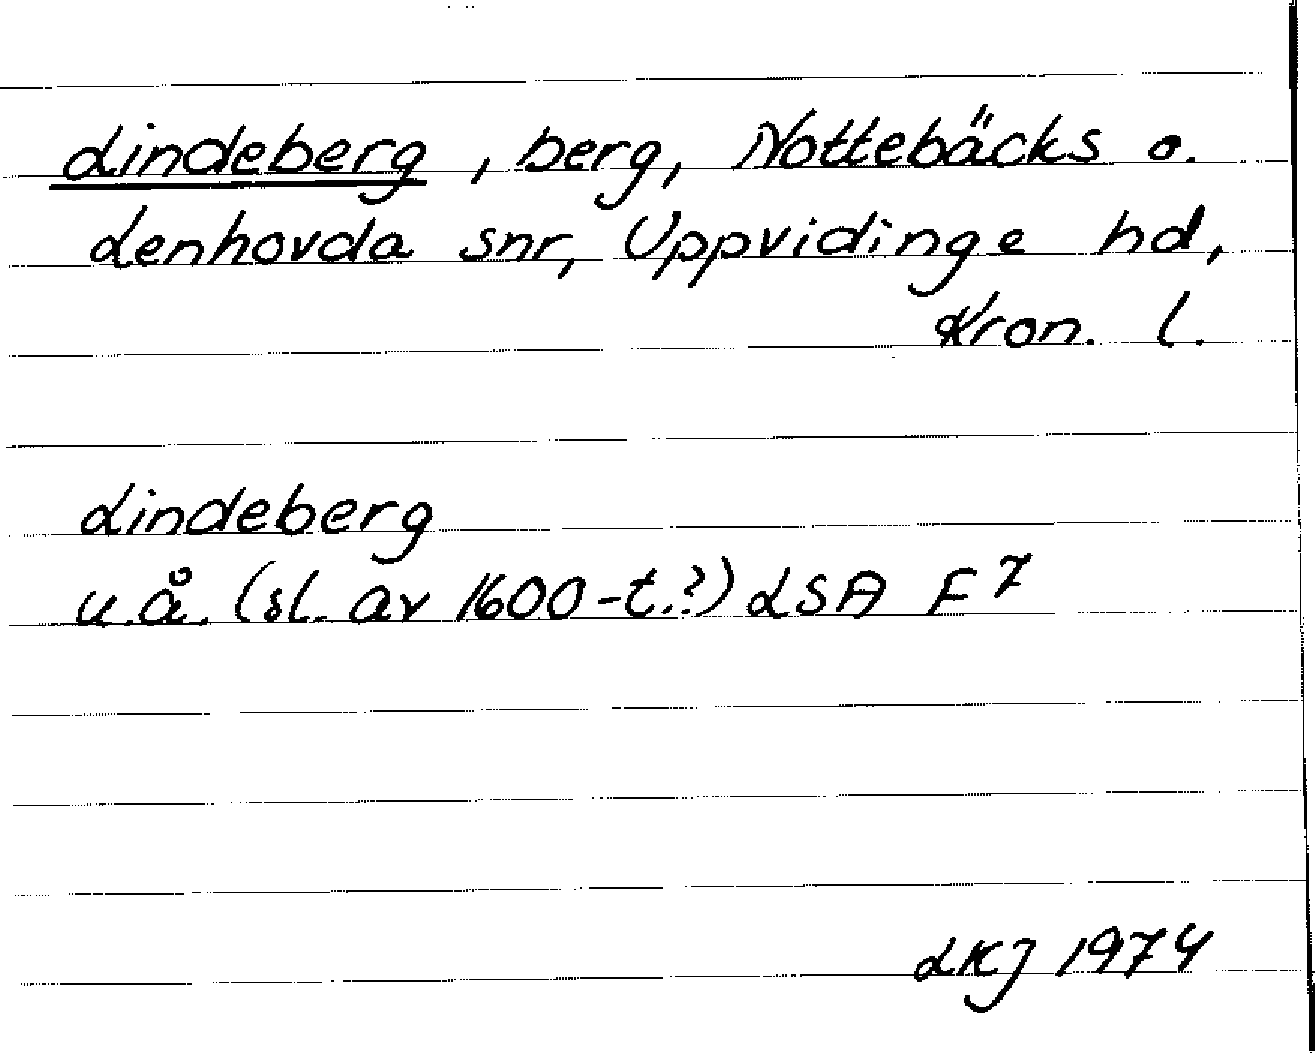 Lindeberg, berg, Nottebäcks o.
Lenhovda snr, Uppvidinge hd,
Kron. l.
Lindeberg
u.å. (sl. av 1600-t.?) LSA F7
LKJ 1974